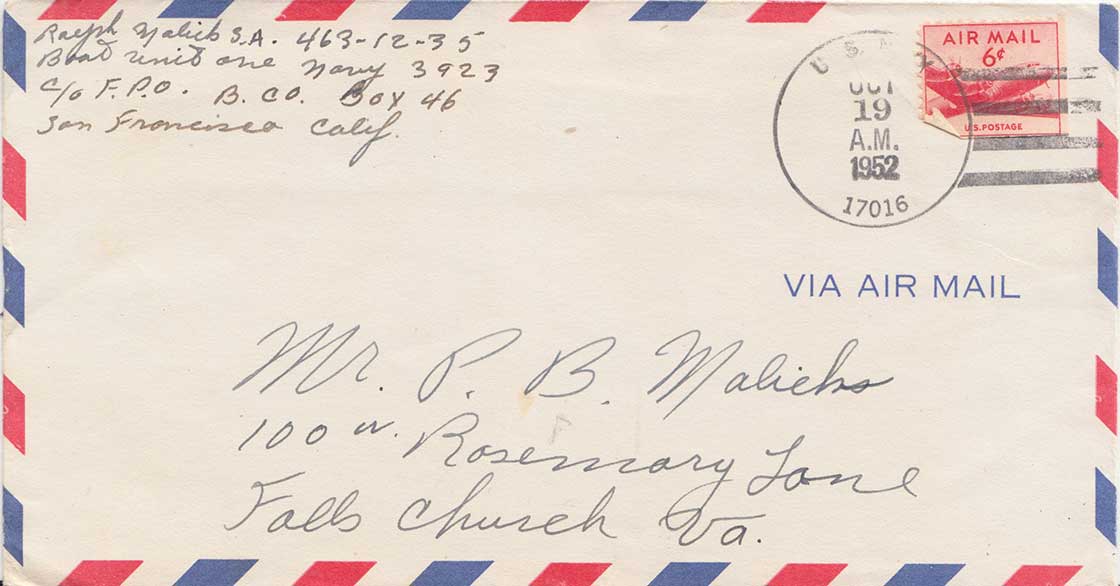 Ralph Malick S.A. 463-12-35
Boat Unit one Navy 3923
c/o F.P.O. B. CO. Box 46
San Francisco Calif.
U.S.
OCT
19
A.M.
1952
17016
AIR MAIL
6¢
U.S. POSTAGE
VIA AIR MAIL
Mr. P. B. Malicks
100 W. Rosemary Lane
Falls Church Va.